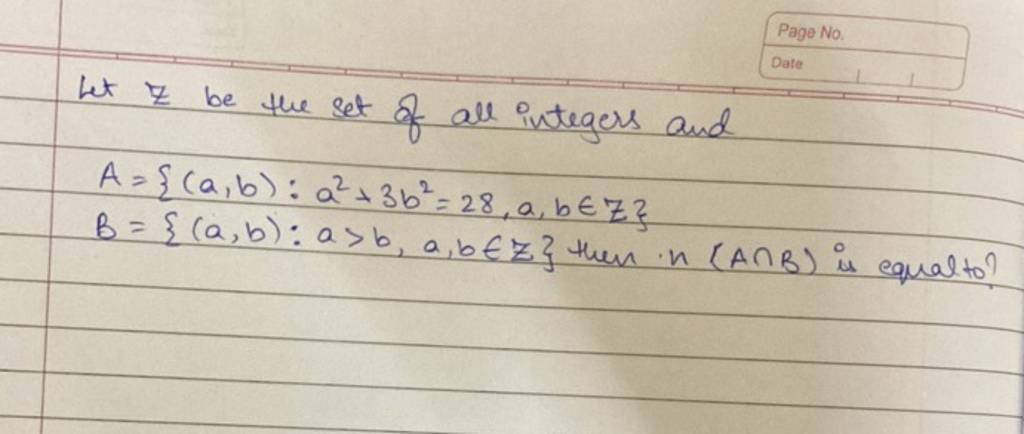 Page No.
Date
Let Z be the set of all integers and
A = {(a,b) : a²+3b² = 28, a, b ∈ Z}
B = {(a,b) : a>b, a,b ∈ Z} then n (A∩B) is equal to?